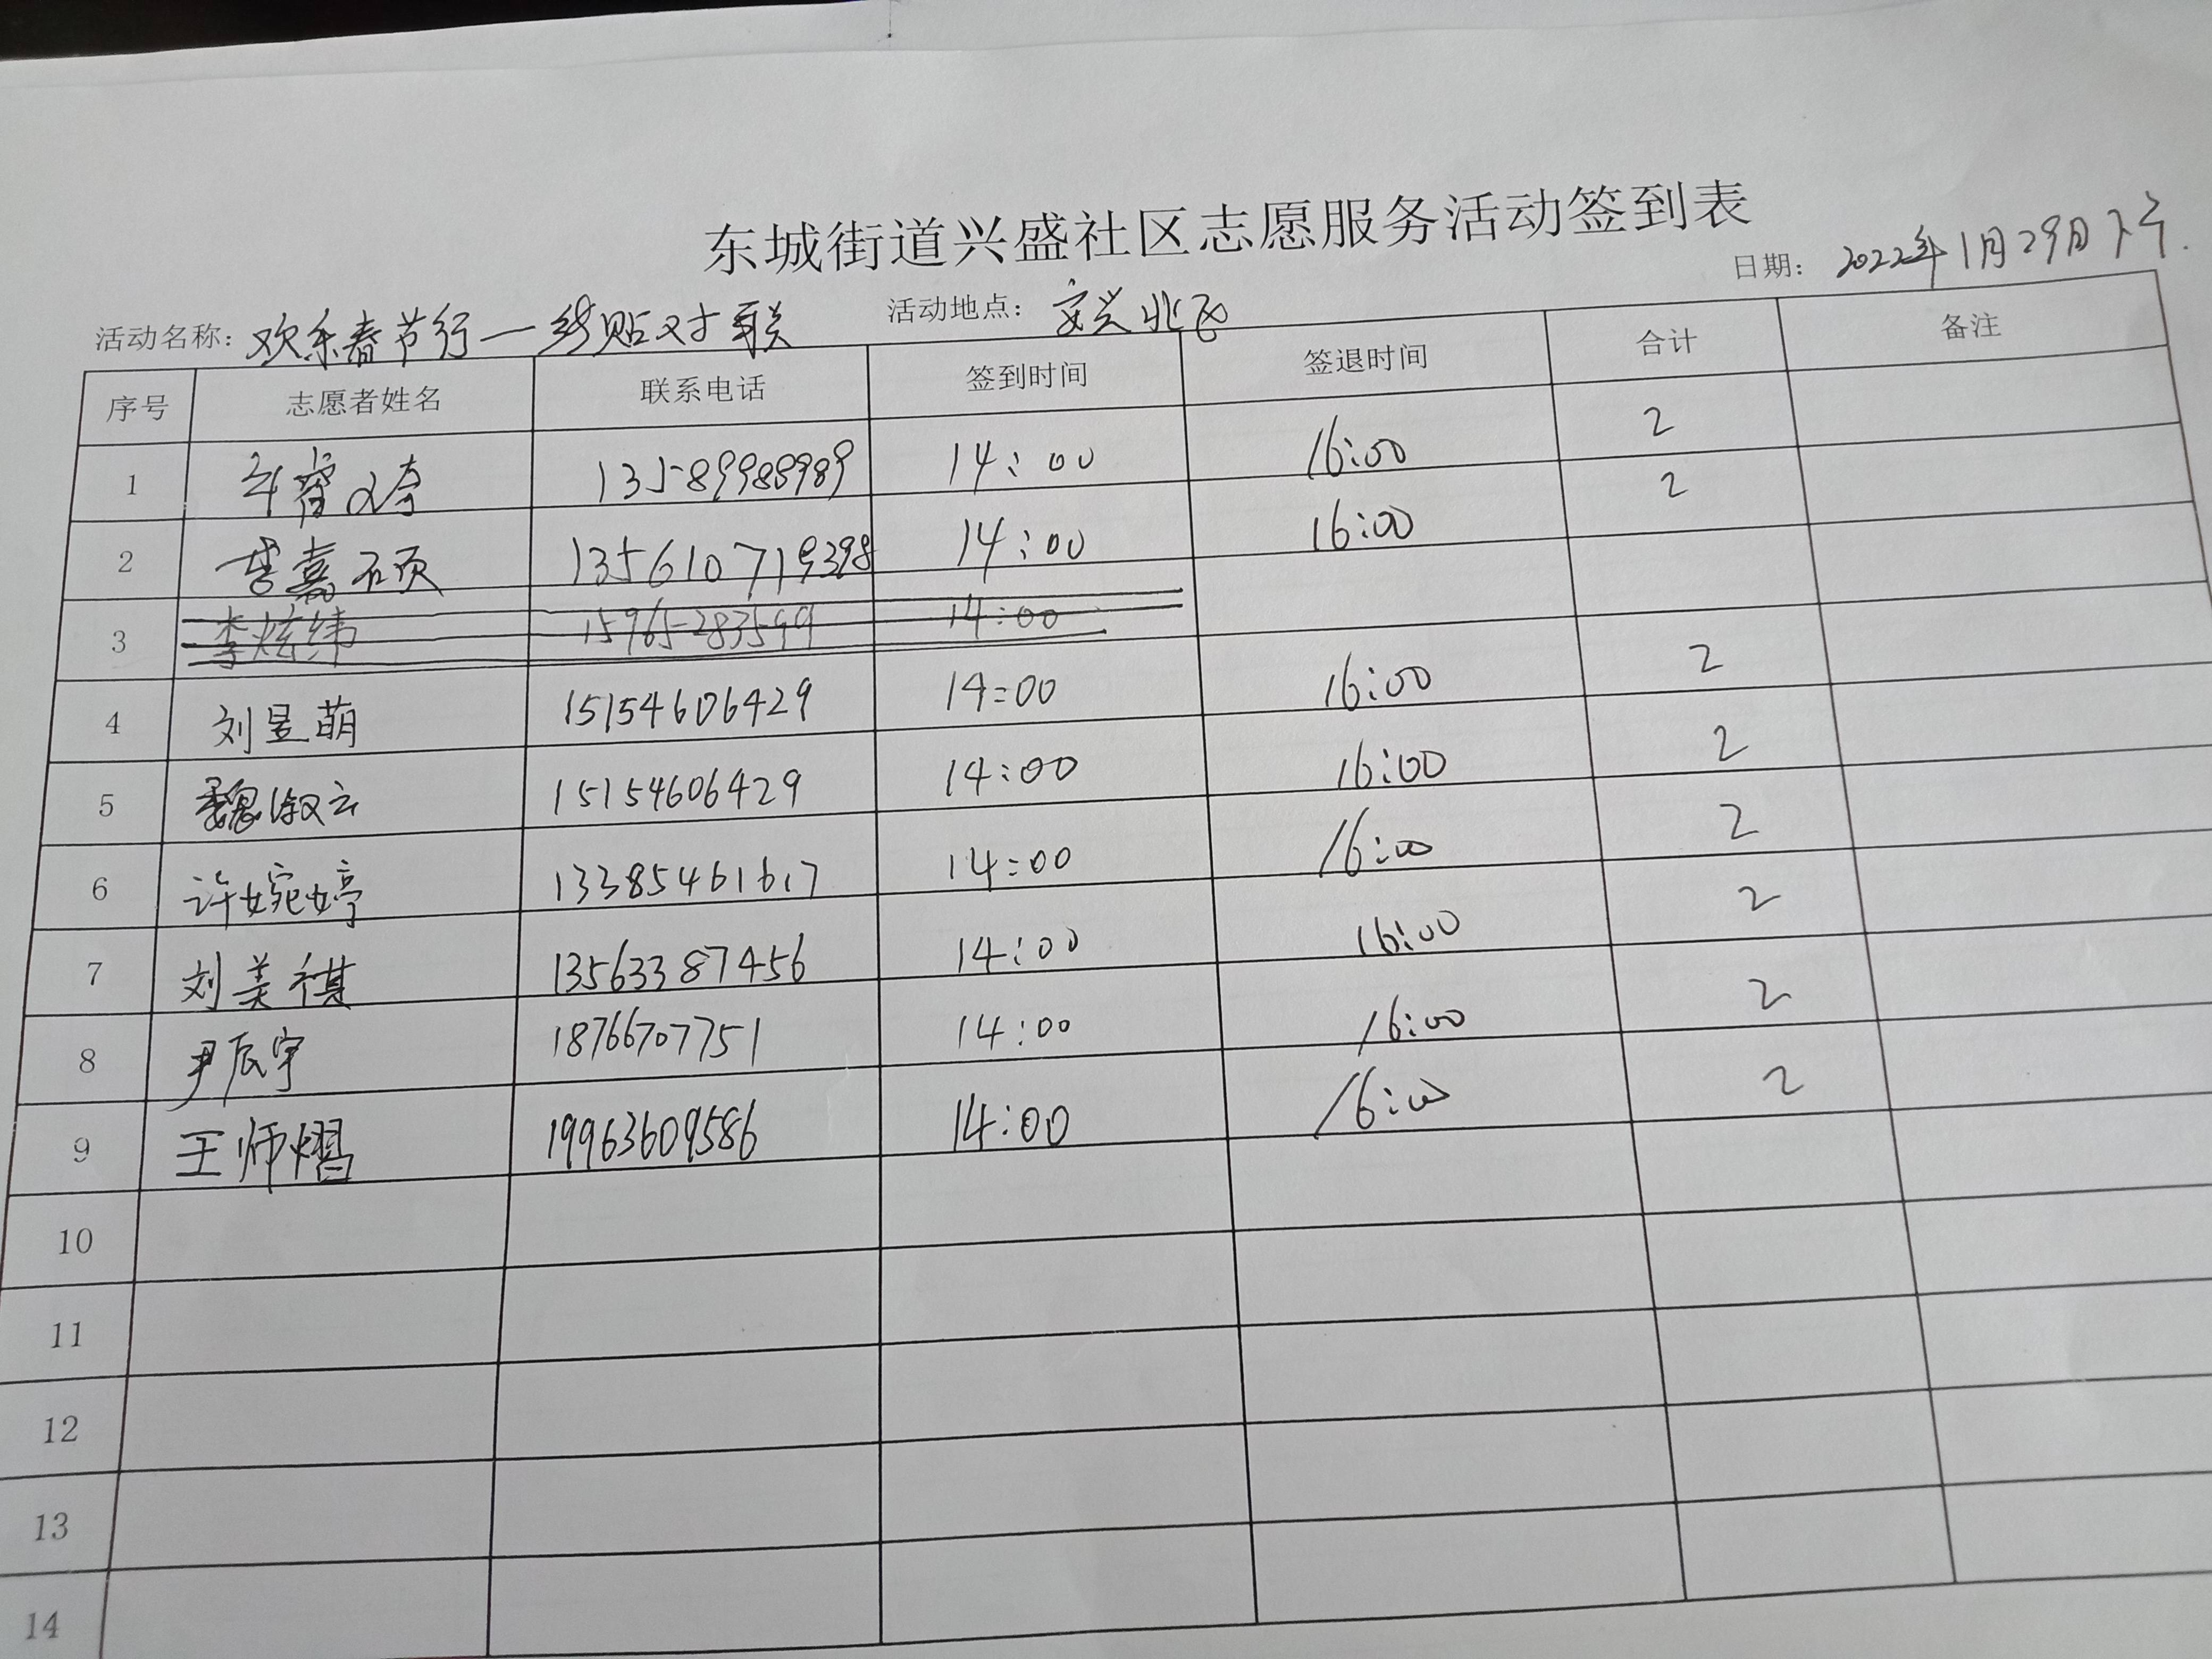 东城街道兴盛社区志愿服务活动签到表
日期：2022年1月29日下午.
活动名称：欢乐春节行一线贴对联 活动地点：安兴北区
序号 志愿者姓名 联系电话 签到时间 签退时间 合计 备注
1 13589988989 14:00 16:00 2
2 李嘉硕 135610719398 14:00 16:00 2
3 李炫纬 15965283599 14:00
4 刘昱萌 15154606429 14:00 16:00 2
5 魏淑云 15154606429 14:00 16:00 2
6 许婉婷 13385461617 14:00 16:00 2
7 刘美祺 13563387456 14:00 16:00 2
8 尹辰宇 18766707751 14:00 16:00 2
9 王师熠 19963609586 14:00 16:00 2
10
11
12
13
14